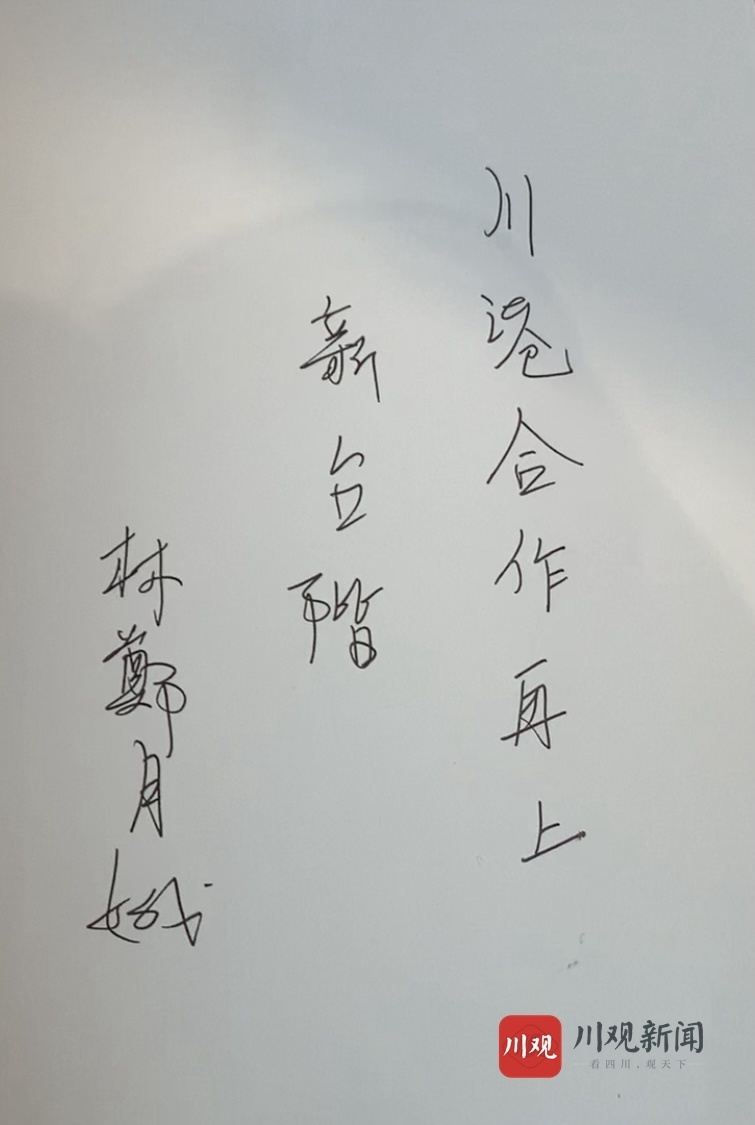 川港合作再上
新台階
林鄭月娥
川观
川观新闻
看四川，观天下